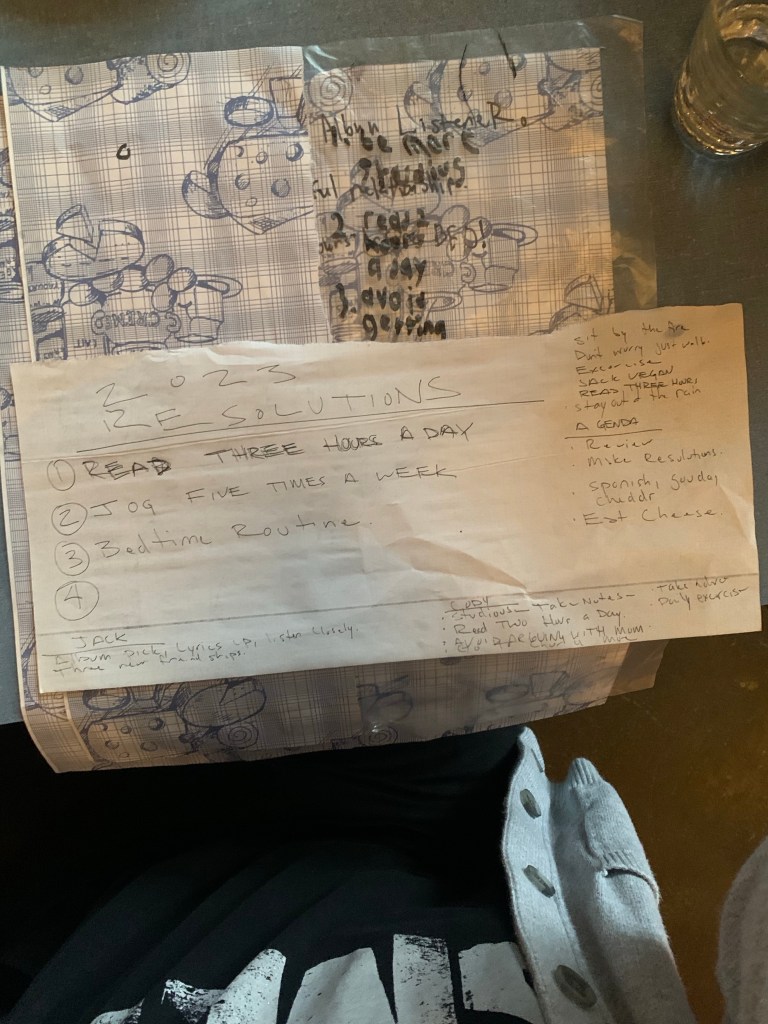 Album Listener.
1. be more
Studious
ful relationships.
2. read 2
hours
a day
3. avoid
getting
2023
RESOLUTIONS
① READ THREE HOURS A DAY
② JOG FIVE TIMES A WEEK
③ Bedtime Routine.
④
Sit by the fire
Don't worry just walk.
Excercise
JACK VEGAN
READ THREE HOURS
stay out of the rain
AGENDA
· Review
· Make Resulutions.
· Spanish, gouda,
cheddr
· Eat Cheese.
JACK
Album Pick, Lyrics LP, listen Closely.
Three new friendships.
CODY
· Studious - Take Notes -
· Read Two Hour a Day.
· AVOID ARGUING WITH MOM
· Daily exercise